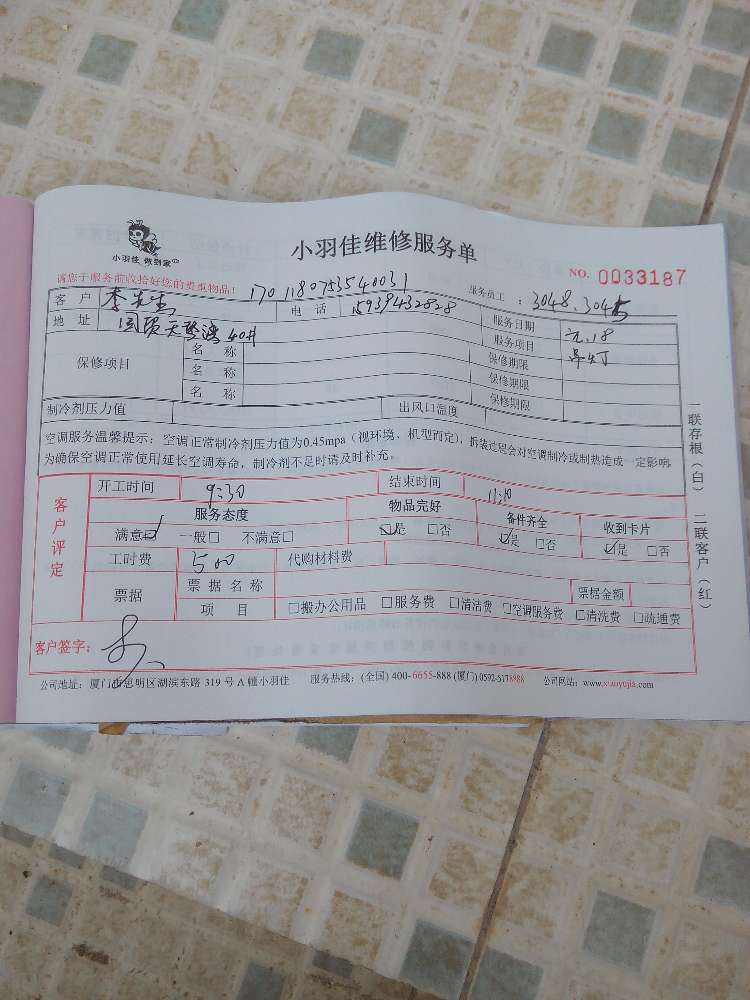 小羽佳 做到家
小羽佳维修服务单
NO. 0033187
请您于服务前收拾好您的贵重物品！ 170118075354003１ 服务员工：3048.304
客 户 李先生 电 话 15939432828 服务日期 元.18
地 址 国贸天琴湾 40# 服务项目 吊灯
保修项目 名 称 保修期限
名 称 保修期限
名 称 保修期限
制冷剂压力值 出风口温度
空调服务温馨提示：空调正常制冷剂压力值为0.45mpa（视环境、机型而定），拆装过程会对空调制冷或制热造成一定影响
为确保空调正常使用延长空调寿命，制冷剂不足时请及时补充。
客户评定
开工时间 9:30 结束时间 11:10
服务态度 物品完好 备件齐全 收到卡片
满意☑ 一般□ 不满意□ ☑是 □否 ☑是 □否 ☑是 □否
工时费 500 代购材料费
票据 票 据 名 称 票据金额
项 目 □搬办公用品 □服务费 □清洁费 □空调服务费 □清洗费 □疏通费
客户签字：
公司地址：厦门市思明区湖滨东路 319 号 A 幢小羽佳 服务热线：(全国) 400-6655-888 (厦门) 0592-5178888 公司网站：www.xiaoyujia.com
一联存根（白） 二联客户（红）